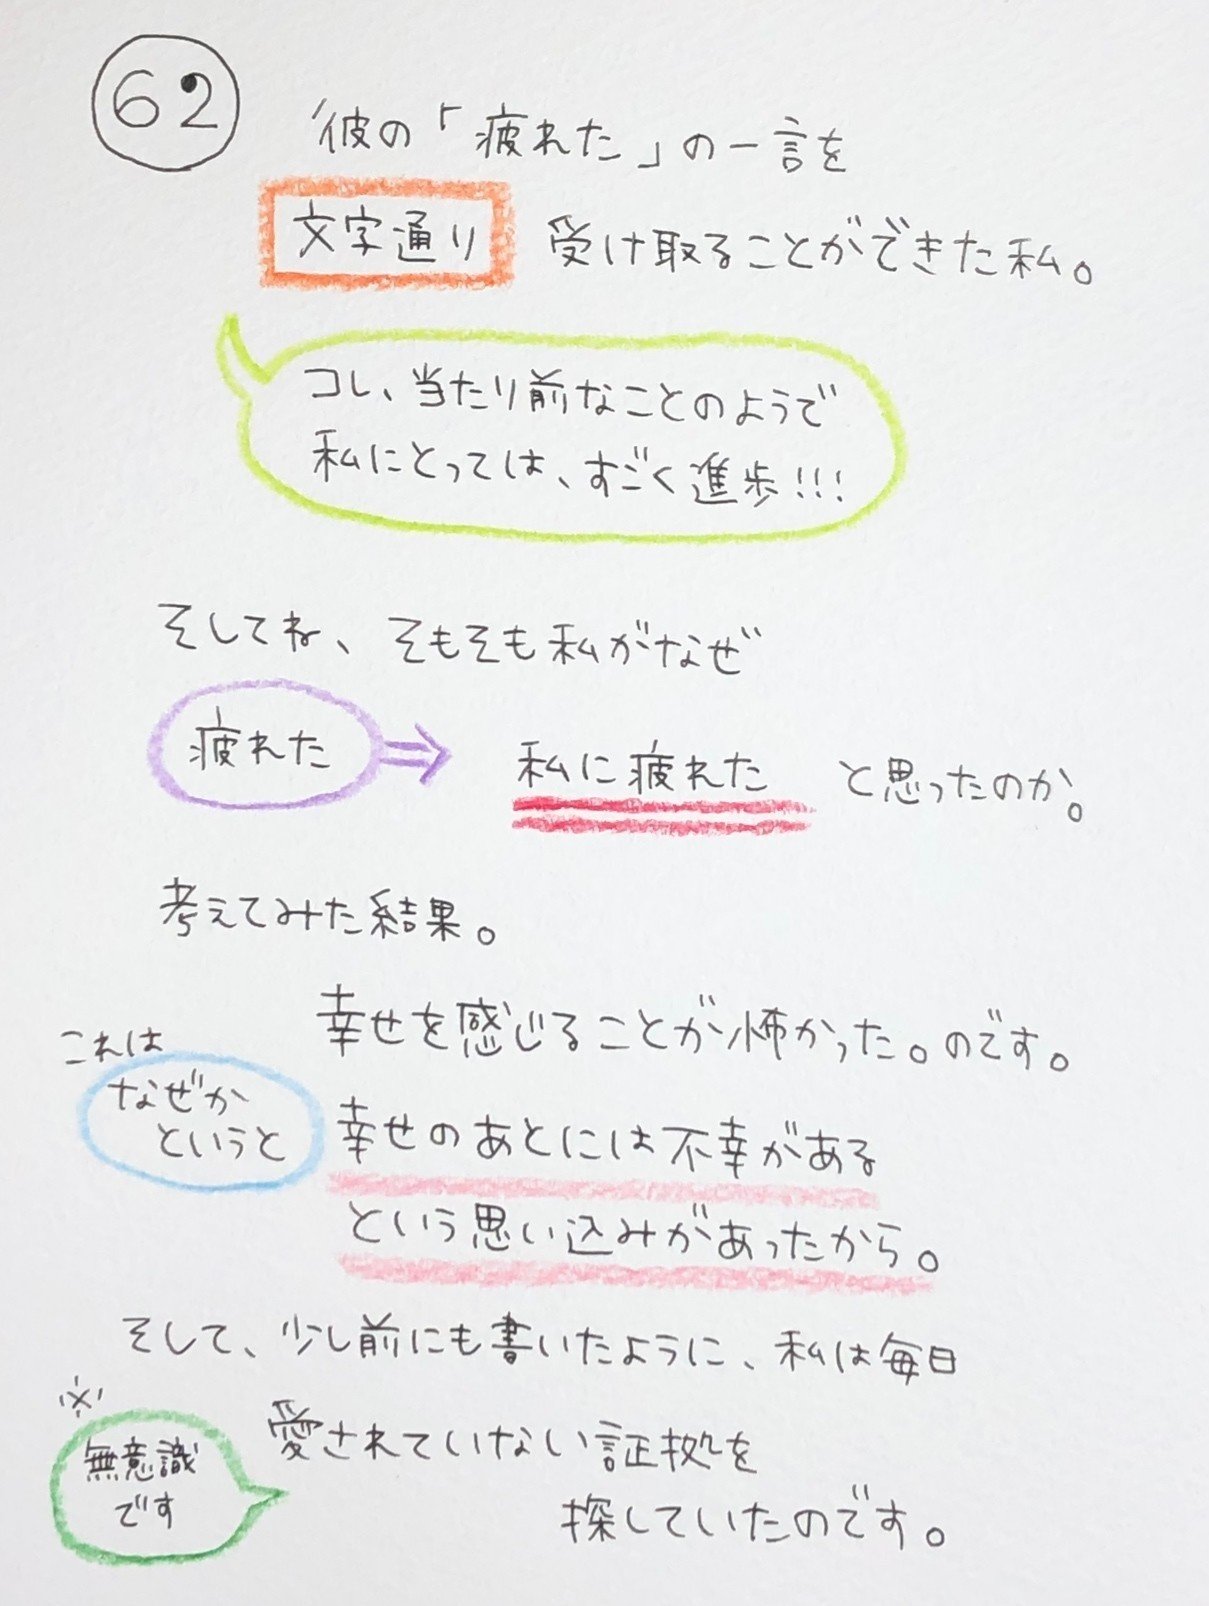 62
彼の「疲れた」の一言を
文字通り 受け取ることができた私。
コレ、当たり前なことのようで
私にとっては、すごく進歩!!!
そしてね、そもそも私がなぜ
疲れた ⇒ 私に疲れた と思ったのか。
考えてみた結果。
幸せを感じることが怖かった。のです。
これは
なぜか
というと
幸せのあとには不幸がある
という思い込みがあったから。
そして、少し前にも書いたように、私は毎日
※
無意識
です
愛されていない証拠を
探していたのです。